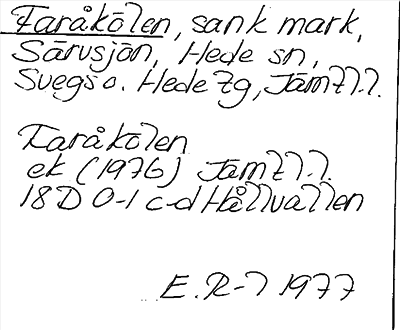 Faråkölen, sank mark,
Särvsjön, Hede sn,
Svegs o. Hede tg, Jämtl.l.
Faråkölen
ek (1976) Jämtl.l.
18D 0-1 c-d Hållvallen
E.R-l 1977